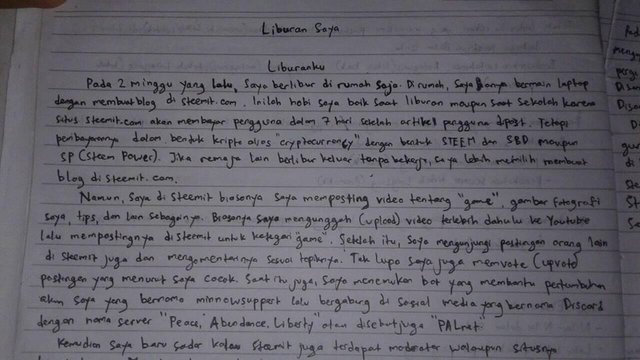 Liburan Saya
Liburanku
Pada 2 minggu yang lalu, saya berlibur di rumah saja. Di rumah, saya hanya bermain laptop
dengan membuat blog di steemit.com. Inilah hobi saya baik saat liburan maupun saat sekolah karena
situs steemit.com akan membayar pengguna dalam 7 hari setelah artikel pengguna dipost. Tetapi
pembayarannya dalam bentuk kripto alias "cryptocurrency" dengan bentuk STEEM dan SBD maupun
SP (Steem Power). Jika remaja lain berlibur keluar tanpa bekerja, saya lebih memilih membuat
blog di steemit.com.
Namun, saya di steemit biasanya saya memposting video tentang "game", gambar fotografi
saya, tips, dan lain sebagainya. Biasanya saya mengunggah (upload) video terlebih dahulu ke Youtube
lalu mempostingnya di steemit untuk kategori "game". Setelah itu, saya mengunjungi postingan orang lain
di steemit juga dan mengomentarinya sesuai topiknya. Tak lupa saya juga memvote (upvote)
postingan yang menurut saya cocok. Saat itu juga, saya menemukan bot yang membantu pertumbuhan
akun saya yang bernama minnowsupport lalu bergabung di sosial media yang bernama Discord
dengan nama server "Peace, Abundance, Liberty" atau disebut juga "PALnet".
Kemudian saya baru sadar kalau steemit juga terdapat moderator walaupun situsnya